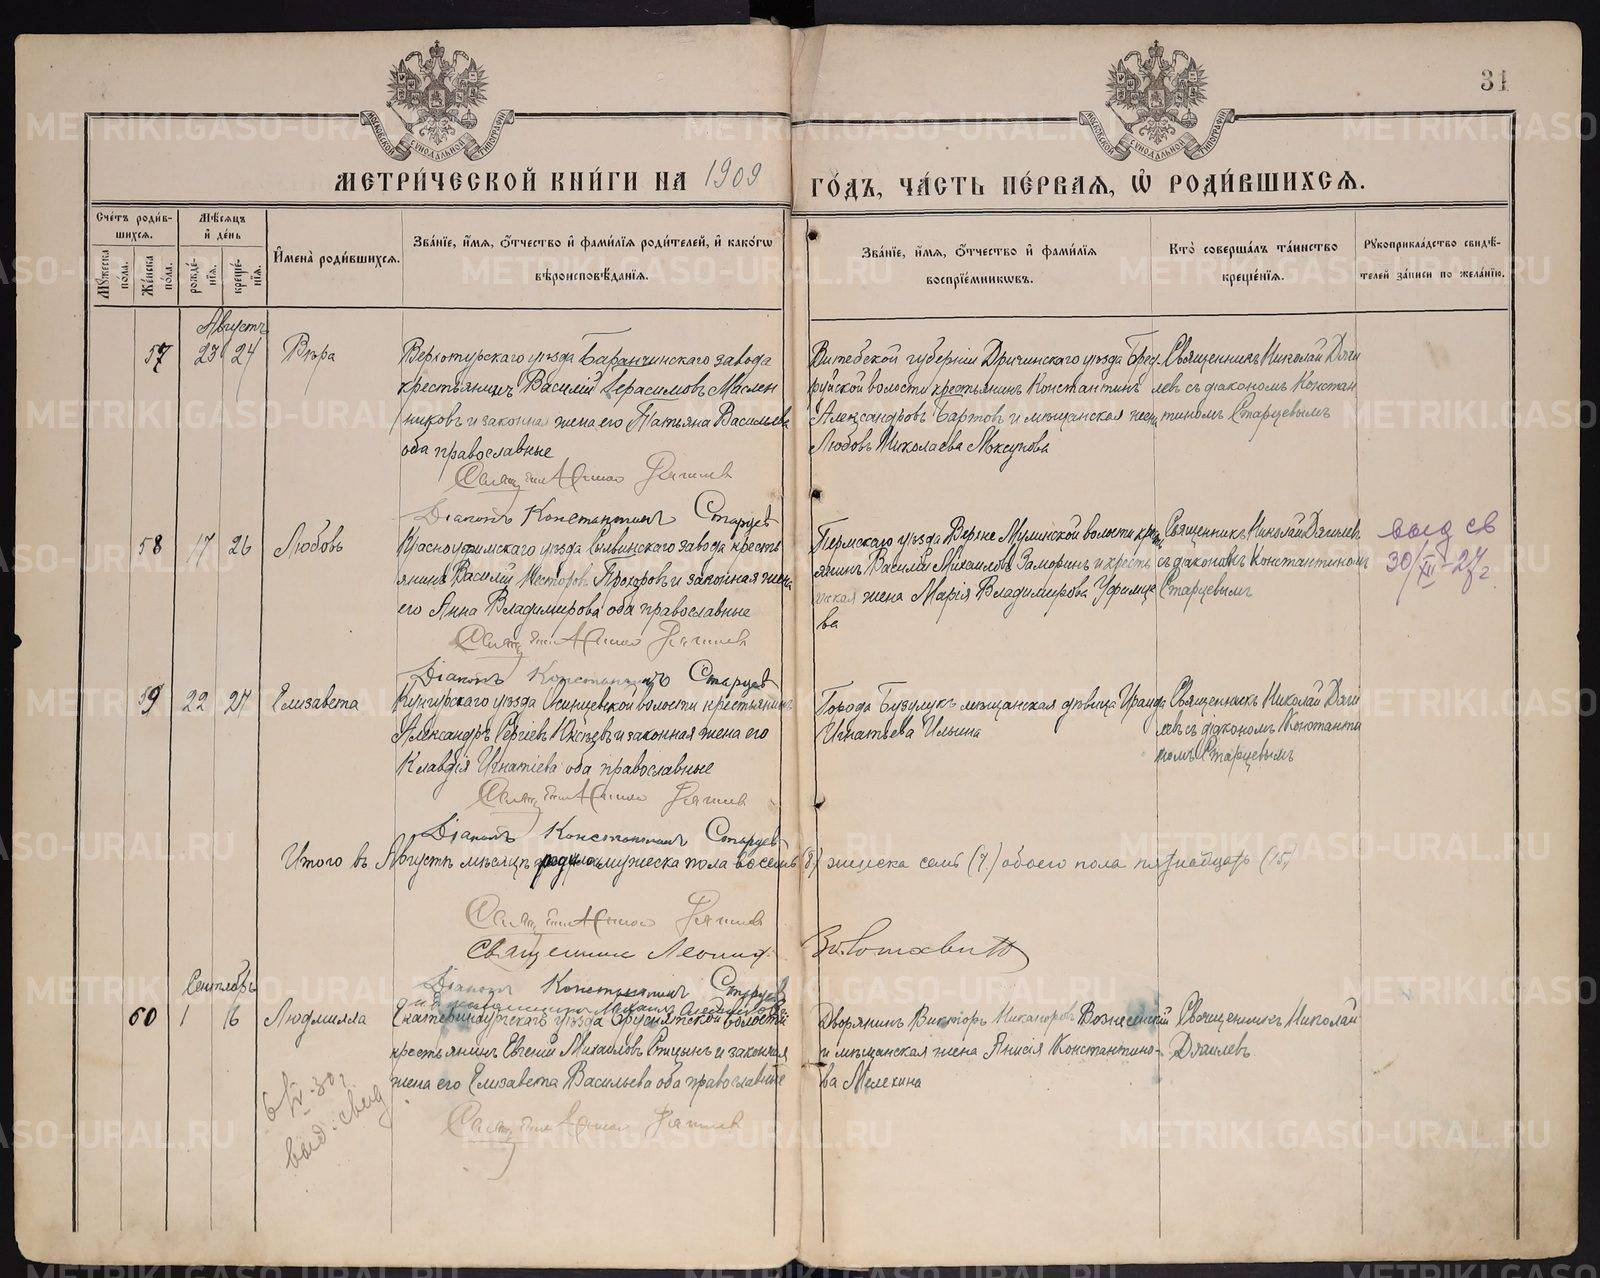 31
МОСКОВСКОЙ СѴНОДАЛЬНОЙ ТИПОГРАФІИ
МОСКОВСКОЙ СѴНОДАЛЬНОЙ ТИПОГРАФІИ
МЕТРИ́ЧЕСКОЙ КНИ́ГИ НА 1909 ГО́ДЪ, ЧА́СТЬ ПЕ́РВАЯ, Ѡ҆ РОДИ́ВШИХСЯ.
Сче́тъ роди́в-
шихся.
Мꙋ́жеска пола.
Же́нска по́ла.
Мѣ́сяцъ
и҆ де́нь
рожде́-
нїя.
креще́-
нїя.
И҆мена̀ роди́вшихся.
Зва́нїе, и҆́мя, ѻ҆́тчество и҆ фами́лїя роди́телей, и҆ како́гѡ
вѣроисповѣ́данїя.
Зва́нїе, и҆́мя, ѻ҆́тчество и҆ фами́лїя
воспрїе́мникѡвъ.
Кто̀ соверша́лъ та́инство
креще́нїя.
Рꙋкоприкла́дство свидѣ́-
телей за́писи по жела́нїю.
Августъ
57 23 24 Вѣра
Верхотурскаго уѣзда Баранчинскаго завода
крестьянинъ Василій Герасимовъ Маслен
никовъ и законная жена его Татьяна Васильева
оба православные
Витебской губерніи Дричинскаго уѣзда
волости крестьянинъ Константинъ
Александровъ Бартовъ и мѣщанская
Любовь Николаева
Священникъ Николай Дяги
левъ съ діакономъ Констан
тиномъ Старцевымъ
Діаконъ Константинъ Старцев
58 17 26 Любовь
Красноуфимскаго уѣзда Сылвинскаго завода кресть
янинъ Василій Несторовъ Прохоровъ и законная жена
его Анна Владимирова оба православные
Пермскаго уѣзда Верхне Муллинской волости крест
янинъ Василій Михаиловъ Заморинъ и кресть
янская жена Марія Владимирова Уфимце
ва
Священникъ Николай Дягилевъ
съ діакономъ Константиномъ
Старцевымъ
выд св
30/XII-27г
Діаконъ Константинъ Старцев
59 22 27 Елизавета
Кунгурскаго уѣзда Осинцевской волости крестьянинъ
Александръ Сергіевъ и законная жена его
Клавдія Игнатіева оба православные
Города Бузулукъ мѣщанская дѣвица Ираида
Игнатьева Ильина
Священникъ Николай Дяги
левъ съ діакономъ Константи
номъ Старцевымъ
Діаконъ Константинъ Старцев
Итого въ Августѣ мѣсяцѣ родилось мужеска пола восемь (8) женска семь (7) обоего пола пятнадцать (15)
Священник Леонид
Діаконъ Константинъ Старцев
Сентябрь
60 1 16 Людмилла
Екатеринбургскаго уѣзда Бруснятской волости
крестьянинъ Евгеній Михаиловъ Птицынъ и законная
жена его Елизавета Васильева оба православные
Дворянинъ Викторъ Никаноровъ Вознесенскій
и мѣщанская жена Анисія Константино-
ва Мелехина
Священникъ Николай
Дягилевъ
6/IV-30г
выд. свид
METRIKI.GASO-URAL.RU